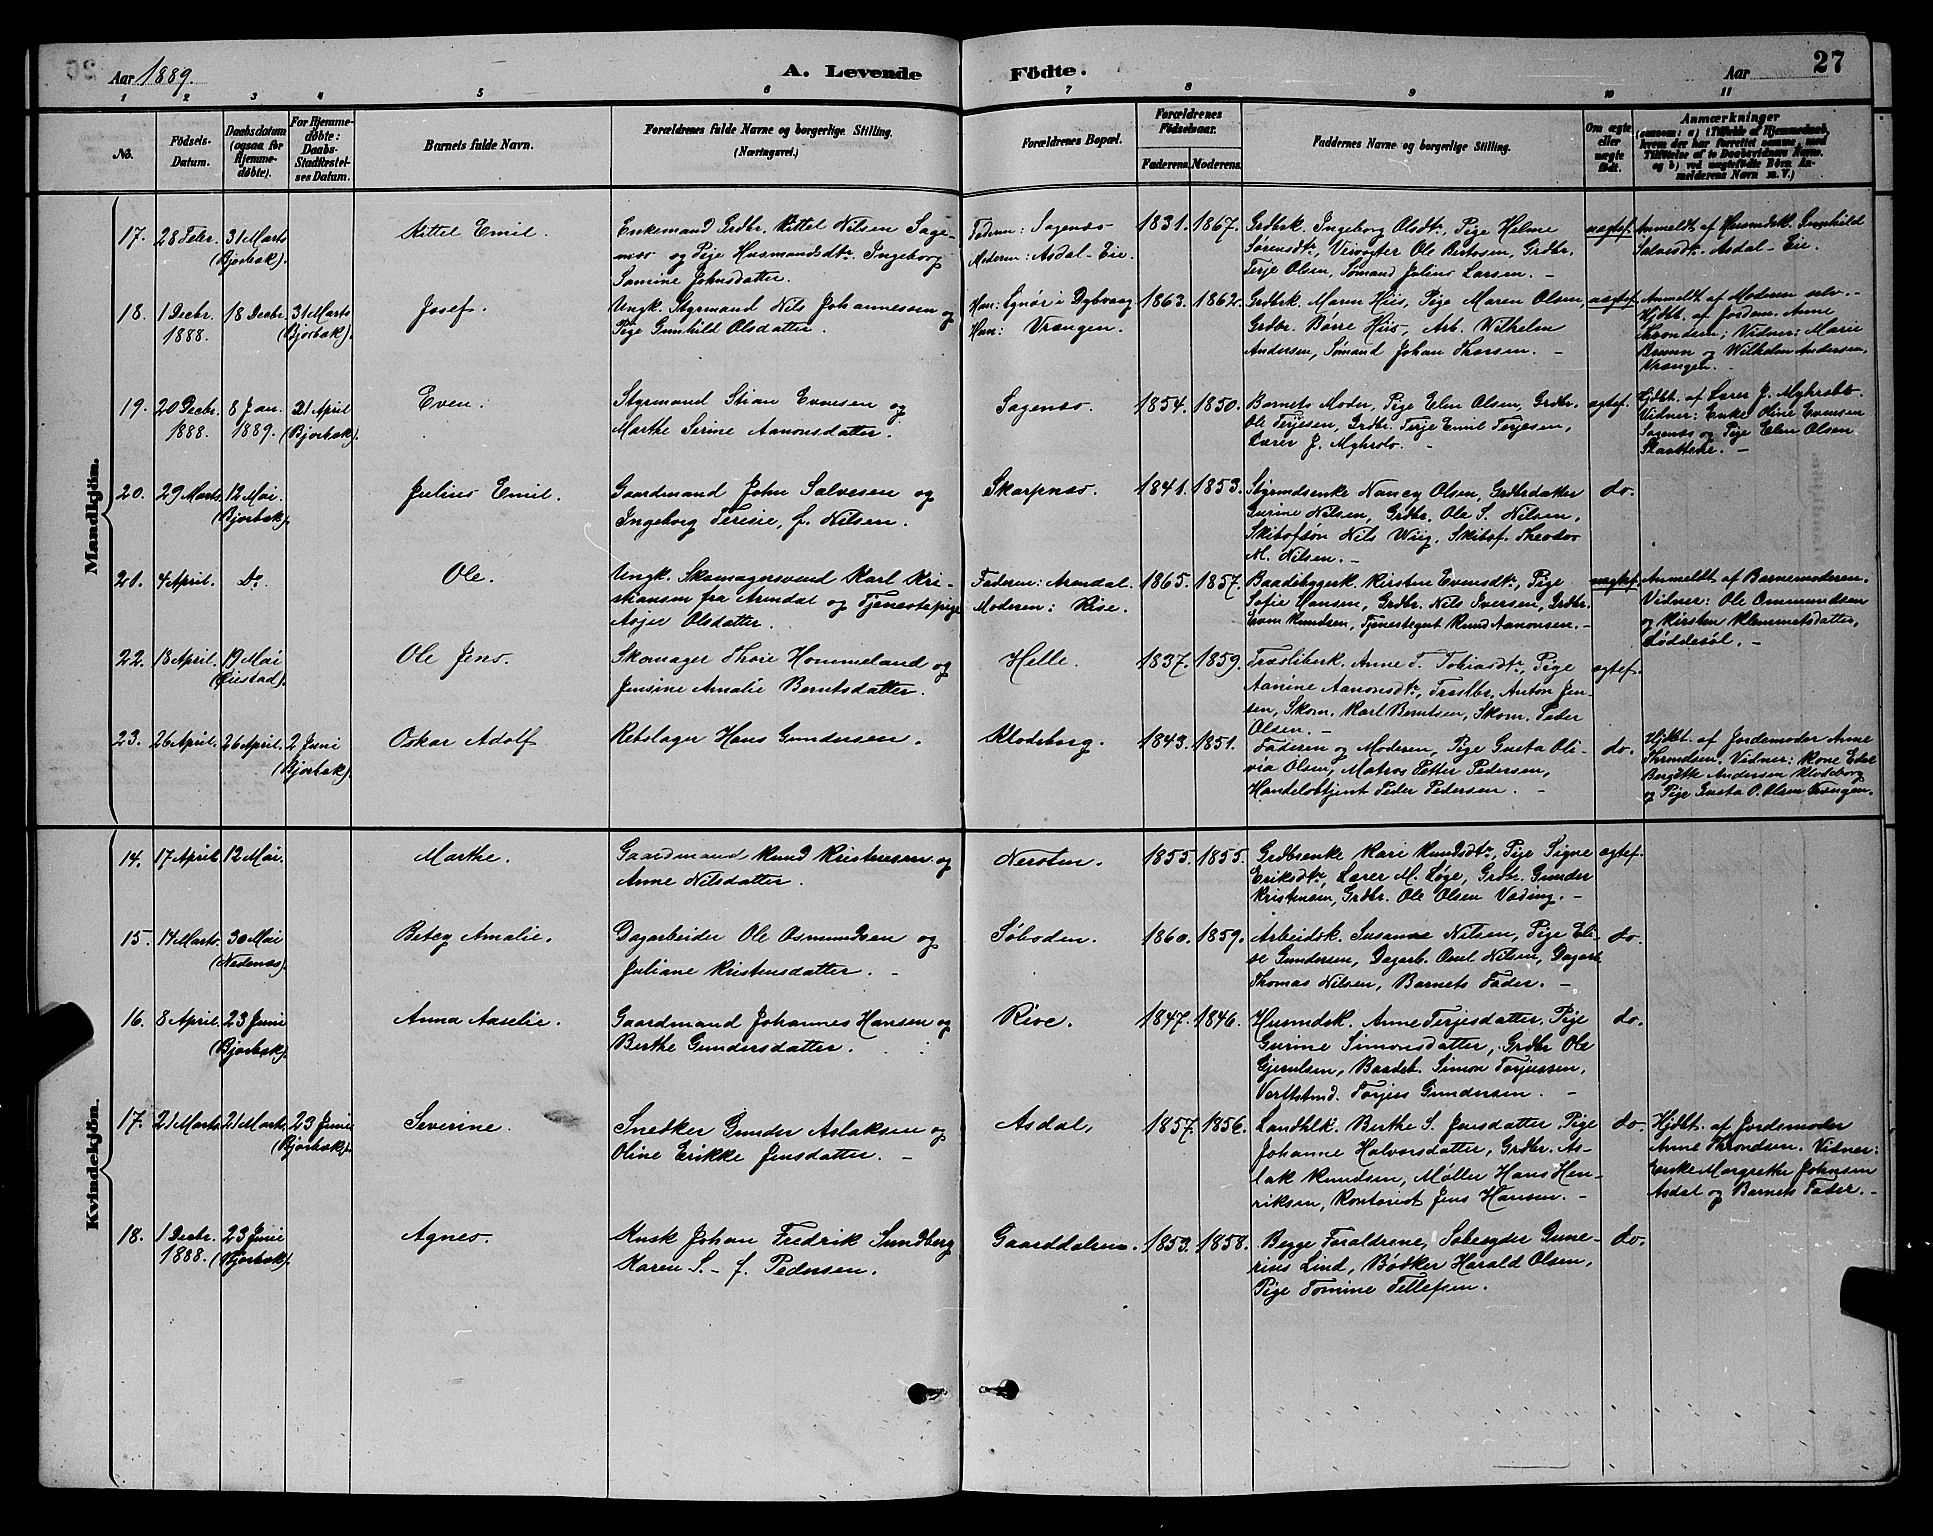 Aar 1889.
A. Levende Födte.
Aar
27
1 2 3 4 5 6 7 8 9 10 11
No.
Födsels-
Datum.
Daabsdatum
(ogsaa for
Hjemme-
döbte).
For Hjemme-
döbte:
Daabs-
Stadfæstel-
ses Datum.
Barnets fulde Navn.
Forældrenes fulde Navne og borgerlige Stilling.
(Næringsvei.)
Forældrenes Bopæl.
Forældrenes
Födselsaar.
Faderens. Moderens.
Faddernes Navne og borgerlige Stilling.
Om ægte
eller
uægte
födt.
Anmærkninger
(saasom: a) i Tilfælde af Hjemmedaab,
hvem der har forrettet samme, med
Tilföielse af to Daabsvidners Navne,
og b) ved uægtefödte Börn An-
melderens Navn m. V.)
Mandkjön.
17. 28 Febr. 31 Marts
(Bjorbæk).
Kittel Emil.
Enkemand Grdbr. Kittel Nilsen Sage-
næs og Pige Husmandsdtr. Ingeborg
Samine Johnsdatter.
Faderen: Sagenæs
Moderen: Asdal-Eie.
1831. 1867.
Grdbsk. Ingeborg Olsdtr, Pige Helme
Sørensdtr, Veivogter Ole Bertosen, Grdbr.
Terje Olsen, Sømand Julius Larsen. –
uægtef.
Anmeldt af Husmdsk. Gunhild
Salvesdtr. Asdal-Eie.
18. 1 Decbr.
1888.
18 Decbr. 31 Marts
(Bjorbæk).
Josef.
Ungk. Styrmand Nils Johannessen og
Pige Gunhild Olsdatter.
Han: Lyngör i Dybvaag
Hun: Vrangen.
1863. 1862.
Grdbsk. Maren Hiis, Pige Maren Olsen,
Grdbr. Børre Hiis, Arb. Wilhelm
Andersen, Sømand Johan Thorsen. –
uægtef.
Anmeldt af Moderen selv. –
Hjdbt. af Jordem. Anne
Throndsen; Vidner: Marie
Brunn og Wilhelm Andersen,
Vrangen. –
19. 20 Decbr.
1888.
8 Jan.
1889.
21 April
(Bjorbæk).
Even.
Styrmand Stian Evensen og
Marthe Serine Aanonsdatter.
Sagenæs.
1854. 1850.
Barnets Moder, Pige Elen Olsen, Grdbr.
Ole Terjesen, Grdbr. Terje Emil Terjesen,
Lærer J. Myhrsto. –
ægtef.
Hjdbt. af Lærer J. Myhrsto.
Vidner: Enke Oline Evensen
Sagenæs og Pige Elen Olsen
20. 29 Marts. 12 Mai.
(Bjorbæk).
Julius Emil.
Gaardmand John Salvesen og
Ingeborg Teresie, f. Nilsen.
Skarpnæs.
1841. 1853.
Styrmdsenke Nancy Olsen, Grdbrdatter
Gurine Nilsen, Grdbr. Ole S. Nilsen,
Skibsføn Nils Wiig, Skibsf. Theodor
M. Nilsen. –
do.
20. 4 April. Do.
Ole.
Ungk. Skomagersvend Karl Kri-
stiansen fra Arendal og Tjenestepige
Asgjer Olsdatter.
Faderen: Arendal.
Moderen: Rise.
1865. 1857.
Baadsbyggerk. Kirstine Evensdtr, Pige
Sofie Hansen, Grdbr. Nils Iversen, Grdbr.
Even Knudsen, Tjenestegut Knud Aanonsen. –
uægtef.
Anmeldt af Barnemoderen.
Vidner: Ole Ommundsen
og Kirsten Klemmetsdatter,
Löddesöl. –
22. 18 April. 19 Mai
(Øiestad).
Ole Jens.
Skomager Thore Hommeland og
Jensine Amalie Berntsdatter.
Helle.
1837. 1859.
Træsliberk. Anne T. Tobiasdtr, Pige
Aanine Aanonsdtr, Træslbr. Anton Jen-
sen, Skom. Karl Berntsen, Skom. Peder
Olsen. –
ægtef.
23. 26 April. 26 April. 2 Juni
(Bjorbæk).
Oskar Adolf
Rebslager Hans Gundersen.
Klodeborg.
1843. 1851.
Faderen og Moderen, Pige Gusta Oli-
via Olsen, Matros Petter Pedersen,
Handelsbtjent Peder Pedersen. –
do.
Hjdbt. af Jordemoder Anne
Throndsen. Vidner: Kone Edel
Bergitte Andersen Klodeborg
og Pige Gusta O. Olsen Vrangen.
Kvindekjön.
14. 17 April. 12 Mai.
Marthe.
Gaardmand Knud Kristensen og
Anne Nilsdatter.
Nersten.
1855. 1855.
Grdbrenke Kari Knudsdtr, Pige Signe
Eriksdtr, Lærer M. Löge, Grdbr. Gunder
Kristensen, Grdbr. Ole Olsen Vading. –
ægtef.
15. 14 Marts. 30 Mai
(Nedenæs).
Betcy Amalie.
Dagarbeider Ole Osmundsen og
Juliane Kristensdatter. –
Söboden.
1860. 1859.
Arbeidsk. Susanne Nilsen, Pige Eli-
se Gundersen, Dagarb. Nilsen, Dagarb.
Thomas Nilsen, Barnets Fader. –
do.
16. 8 April. 23 Juni
(Bjorbæk).
Anna Aaselie.
Gaardmand Johannes Hansen og
Berthe Gundersdatter.
Rise.
1847. 1846.
Husmdsk. Anne Terjesdatter, Pige
Gurine Simonsdatter, Grdbr. Ole
Gjerulsen, Baadsb. Simon Torjussen,
Torjus Gundersen. –
do.
17. 21 Marts. 21 Marts. 23 Juni
(Bjorbæk).
Severine.
Snedker Gunder Aslaksen og
Oline Erikke Jensdatter. –
Asdal,
1857. 1856.
Landhlk. Berthe S. Jensdatter, Pige
Johanne Halvorsdatter, Grdbr. As-
lak Knudsen, Møller Hans Hen-
riksen, Kontorist Jens Hansen. –
do.
Hjdbt. af Jordemoder
Anne Throndsen. Vidner:
Enke Margrethe Johnsen
Asdal og Barnets Fader. –
18. 1 Decbr.
1888.
23 Juni
(Bjorbæk).
Agnes.
Kusk Johan Fredrik Sundberg
Karen S. – f. Pedersen.
Gaarddalen.
1853. 1858.
Begge Forældrene, Gune-
rius Lind, Bödker Harald Olsen,
Pige Tomine Tellefsen.
do.